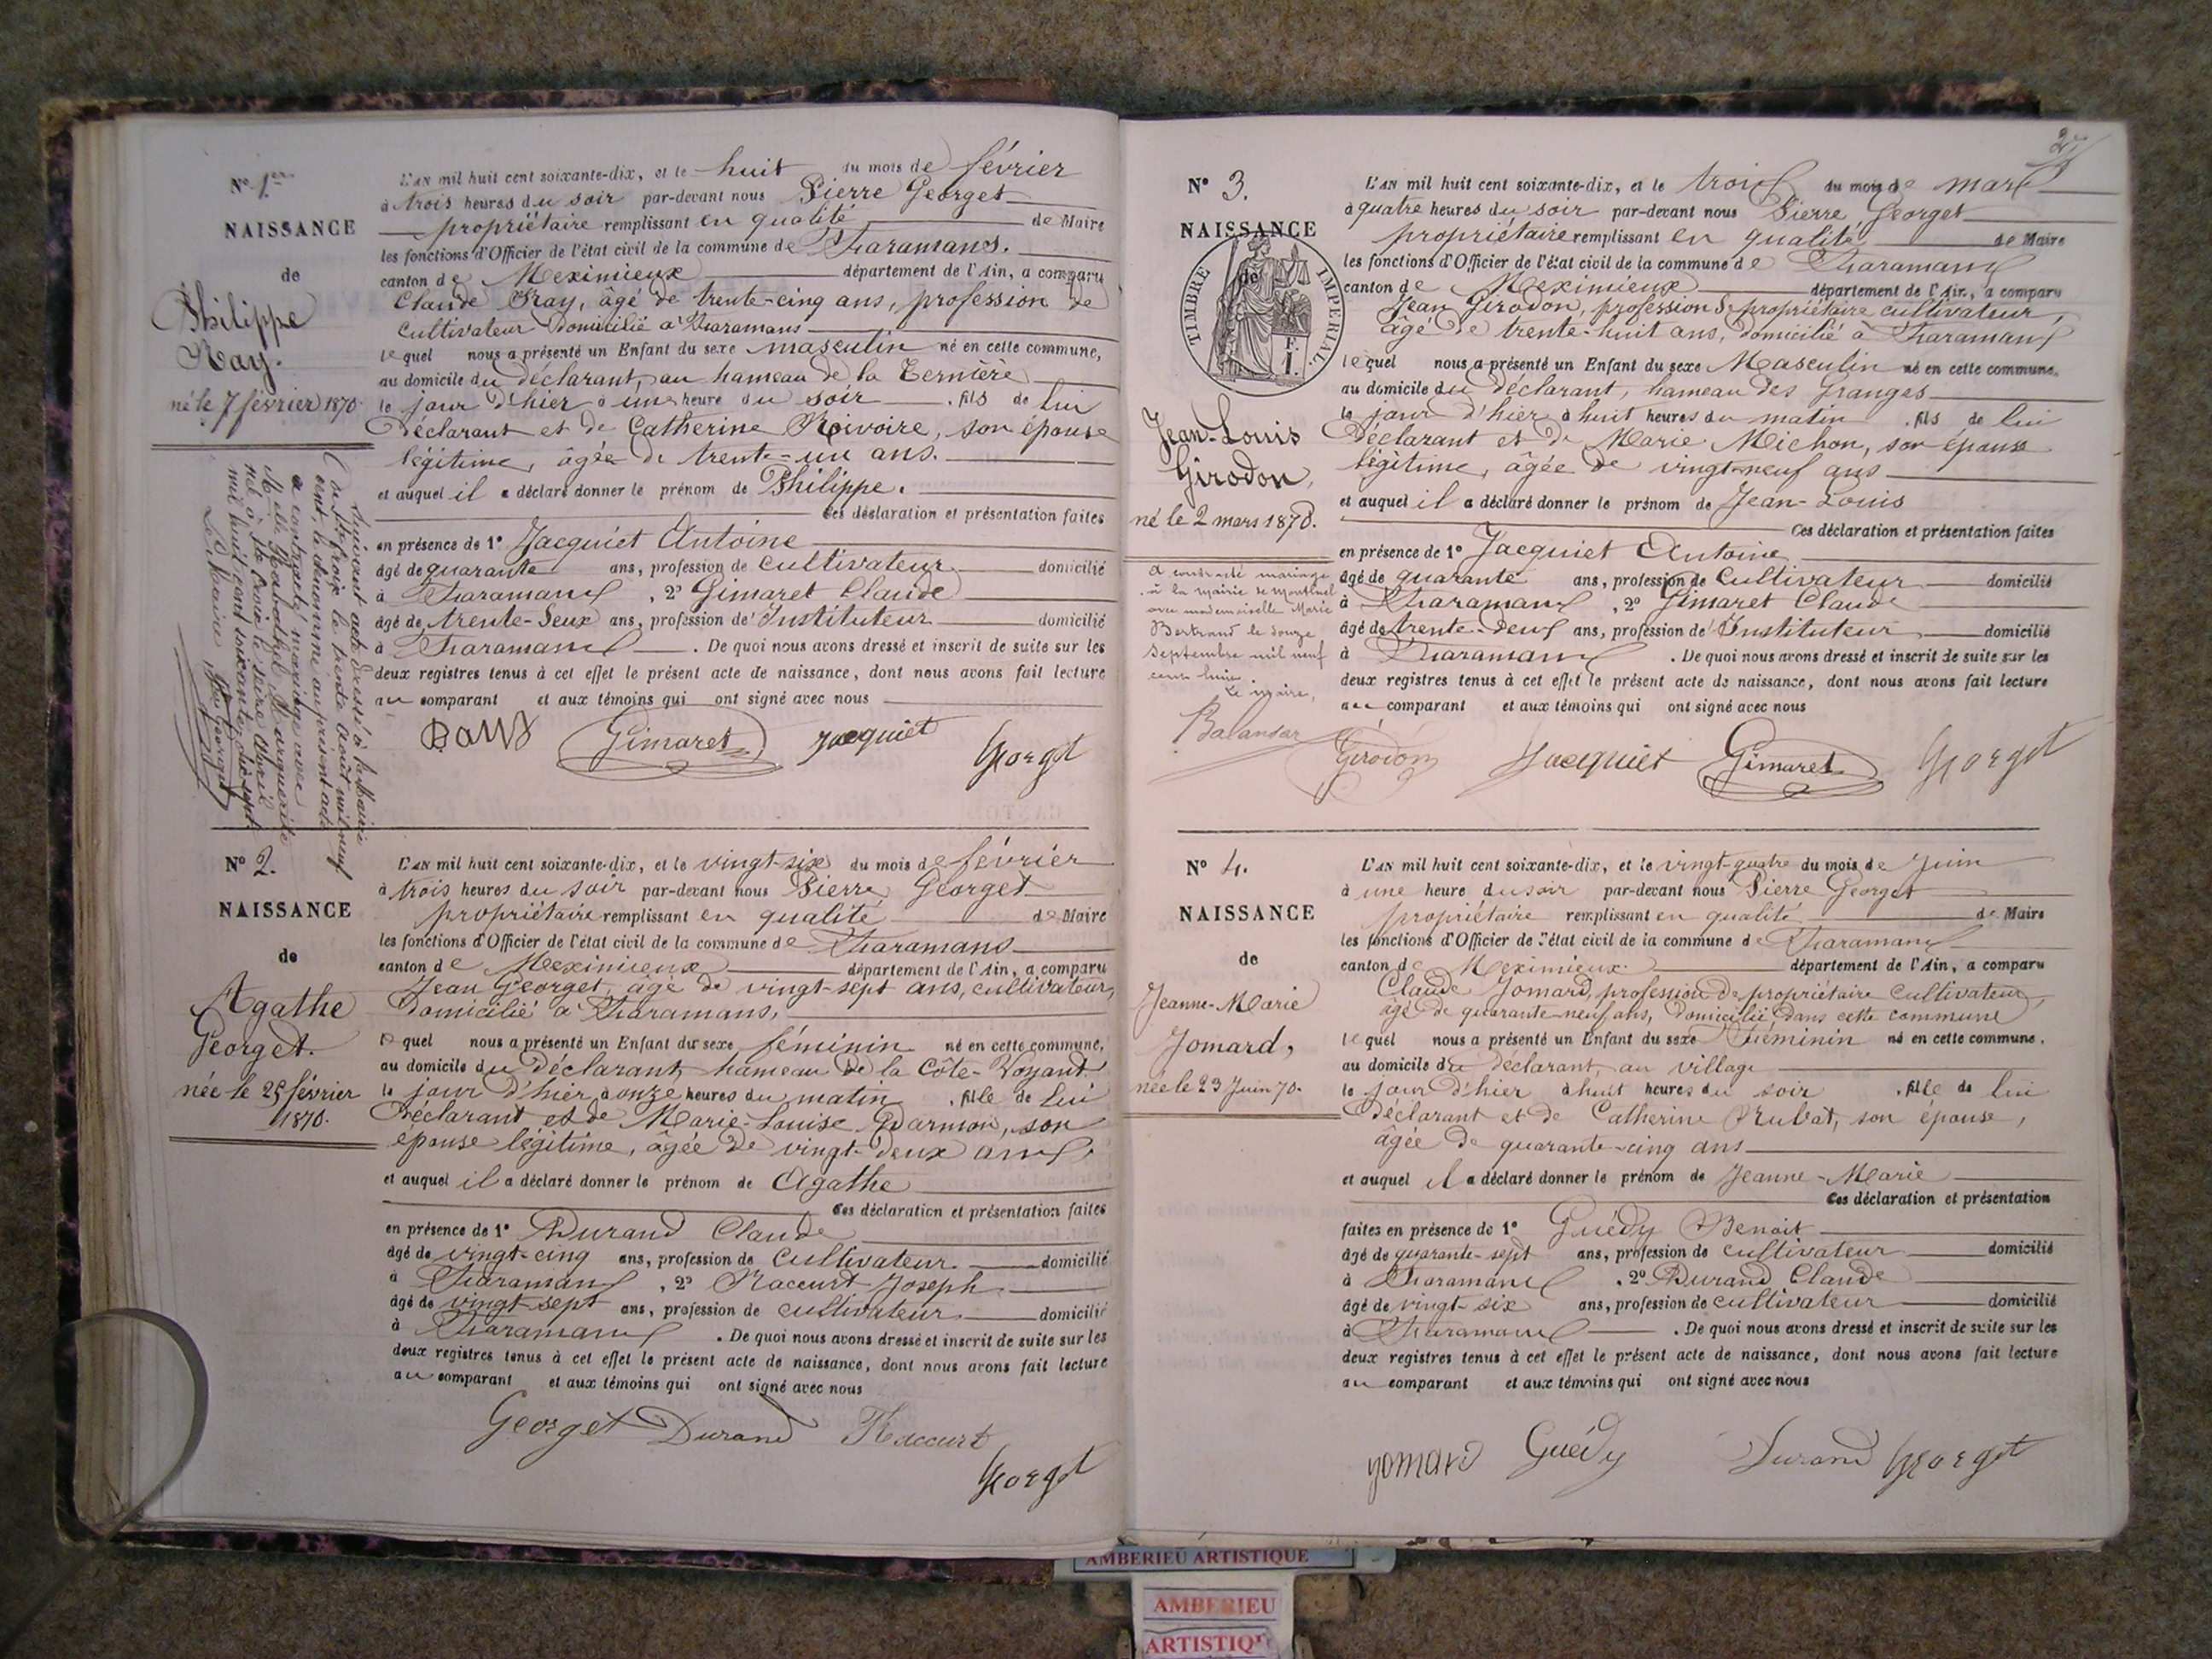 N° 1er
NAISSANCE
de
Philippe
Ray.
né le 7 février 1870.
L'AN mil huit cent soixante-dix, et le huit du mois de février
à trois heures du soir par-devant nous Pierre Georget
propriétaire remplissant en qualité de Maire
les fonctions d'Officier de l'état civil de la commune de Faramans.
canton de Meximieux département de l'Ain, a comparu
Claude Ray, âgé de trente-cinq ans, profession de
cultivateur domicilié à Faramans
lequel nous a présenté un Enfant du sexe masculin né en cette commune,
au domicile du déclarant, au hameau de la
le jour d'hier à une heure du soir . fils de lui
déclarant et de Catherine Rivoire, son épouse
légitime, âgée de trente-un ans.
et auquel il a déclaré donner le prénom de Philippe.
Ces déclaration et présentation faites
en présence de 1° Jacquiet Antoine
âgé de quarante ans, profession de cultivateur domicilié
à Faramans , 2° Gimaret Claude
âgé de trente-deux ans, profession d'Instituteur domicilié
à Faramans . De quoi nous avons dressé et inscrit de suite sur les
deux registres tenus à cet effet le présent acte de naissance, dont nous avons fait lecture
au comparant et aux témoins qui ont signé avec nous
Gimaret Jacquiet
Georget
Suivant acte dressé à la Mairie
de Ste Croix le trente août mil neuf
cent, le dénommé au présent acte
a contracté mariage avec
Marguerite
mil huit cent soixante dix-sept.
Le Maire
N° 2.
NAISSANCE
de
Agathe
Georget.
née le 25 février
1870.
L'AN mil huit cent soixante-dix, et le vingt-six du mois de février
à trois heures du soir par-devant nous Pierre Georget
propriétaire remplissant en qualité de Maire
les fonctions d'Officier de l'état civil de la commune de Faramans
canton de Meximieux département de l'Ain, a comparu
Jean Georget, âgé de vingt-sept ans, cultivateur,
domicilié à Faramans,
lequel nous a présenté un Enfant du sexe féminin né en cette commune,
au domicile du déclarant, hameau de la Côte-Voyant
le jour d'hier à onze heures du matin . fille de lui
déclarant et de Marie-Louise Darmon, son
épouse légitime, âgée de vingt-deux ans,
et auquel il a déclaré donner le prénom de Agathe
Ces déclaration et présentation faites
en présence de 1° Durand Claude
âgé de vingt-cinq ans, profession de cultivateur domicilié
à Faramans , 2° Raccurt Joseph
âgé de vingt-sept ans, profession de cultivateur domicilié
à Faramans . De quoi nous avons dressé et inscrit de suite sur les
deux registres tenus à cet effet le présent acte de naissance, dont nous avons fait lecture
au comparant et aux témoins qui ont signé avec nous
Georget Durand Raccurt
Georget
N° 3.
NAISSANCE
de
TIMBRE IMPERIAL.
F.
1.
Jean-Louis
Girodon,
né le 2 mars 1870.
a contracté mariage
à la mairie de Montluel
avec mademoiselle Marie
Bertrand le douze
septembre mil neuf
cent huit.
Le maire,
Balandar
L'AN mil huit cent soixante-dix, et le trois du mois de mars
à quatre heures du soir par-devant nous Pierre Georget
propriétaire remplissant en qualité de Maire
les fonctions d'Officier de l'état civil de la commune de Faramans
canton de Meximieux département de l'Ain, a comparu
Jean Girodon, profession de propriétaire cultivateur,
âgé de trente-huit ans, domicilié à Faramans
lequel nous a présenté un Enfant du sexe Masculin né en cette commune.
au domicile du déclarant, hameau des granges
le jour d'hier à huit heures du matin . fils de lui
déclarant et de Marie Michon, son épouse
légitime, âgée de vingt-neuf ans
et auquel il a déclaré donner le prénom de Jean-Louis
Ces déclaration et présentation faites
en présence de 1° Jacquiet Antoine
âgé de quarante ans, profession de cultivateur domicilié
à Faramans , 2° Gimaret Claude
âgé de trente-deux ans, profession d'Instituteur domicilié
à Faramans . De quoi nous avons dressé et inscrit de suite sur les
deux registres tenus à cet effet le présent acte de naissance, dont nous avons fait lecture
au comparant et aux témoins qui ont signé avec nous
Girodon Jacquiet Gimaret Georget
N° 4.
NAISSANCE
de
Jeanne-Marie
Jomard,
née le 23 Juin 70.
L'AN mil huit cent soixante-dix, et le vingt-quatre du mois de Juin
à une heure du soir par-devant nous Pierre Georget
propriétaire remplissant en qualité de Maire
les fonctions d'Officier de l'état civil de la commune de Faramans
canton de Meximieux département de l'Ain, a comparu
Claude Jomard, profession de propriétaire cultivateur,
âgé de quarante-neuf ans, domicilié dans cette commune
lequel nous a présenté un Enfant du sexe Féminin né en cette commune.
au domicile du déclarant, au village
le jour d'hier à huit heures du soir . fille de lui
déclarant et de Catherine Rubat, son épouse,
âgée de quarante-cinq ans
et auquel il a déclaré donner le prénom de Jeanne-Marie
Ces déclaration et présentation
faites en présence de 1° Guédy Benoit
âgé de quarante-sept ans, profession de cultivateur domicilié
à Faramans , 2° Durand Claude
âgé de vingt-six ans, profession de cultivateur domicilié
à Faramans . De quoi nous avons dressé et inscrit de suite sur les
deux registres tenus à cet effet le présent acte de naissance, dont nous avons fait lecture
au comparant et aux témoins qui ont signé avec nous
Jomard Guédy Durand Georget
AMBERIEU ARTISTIQUE
AMBERIEU
ARTISTIQU